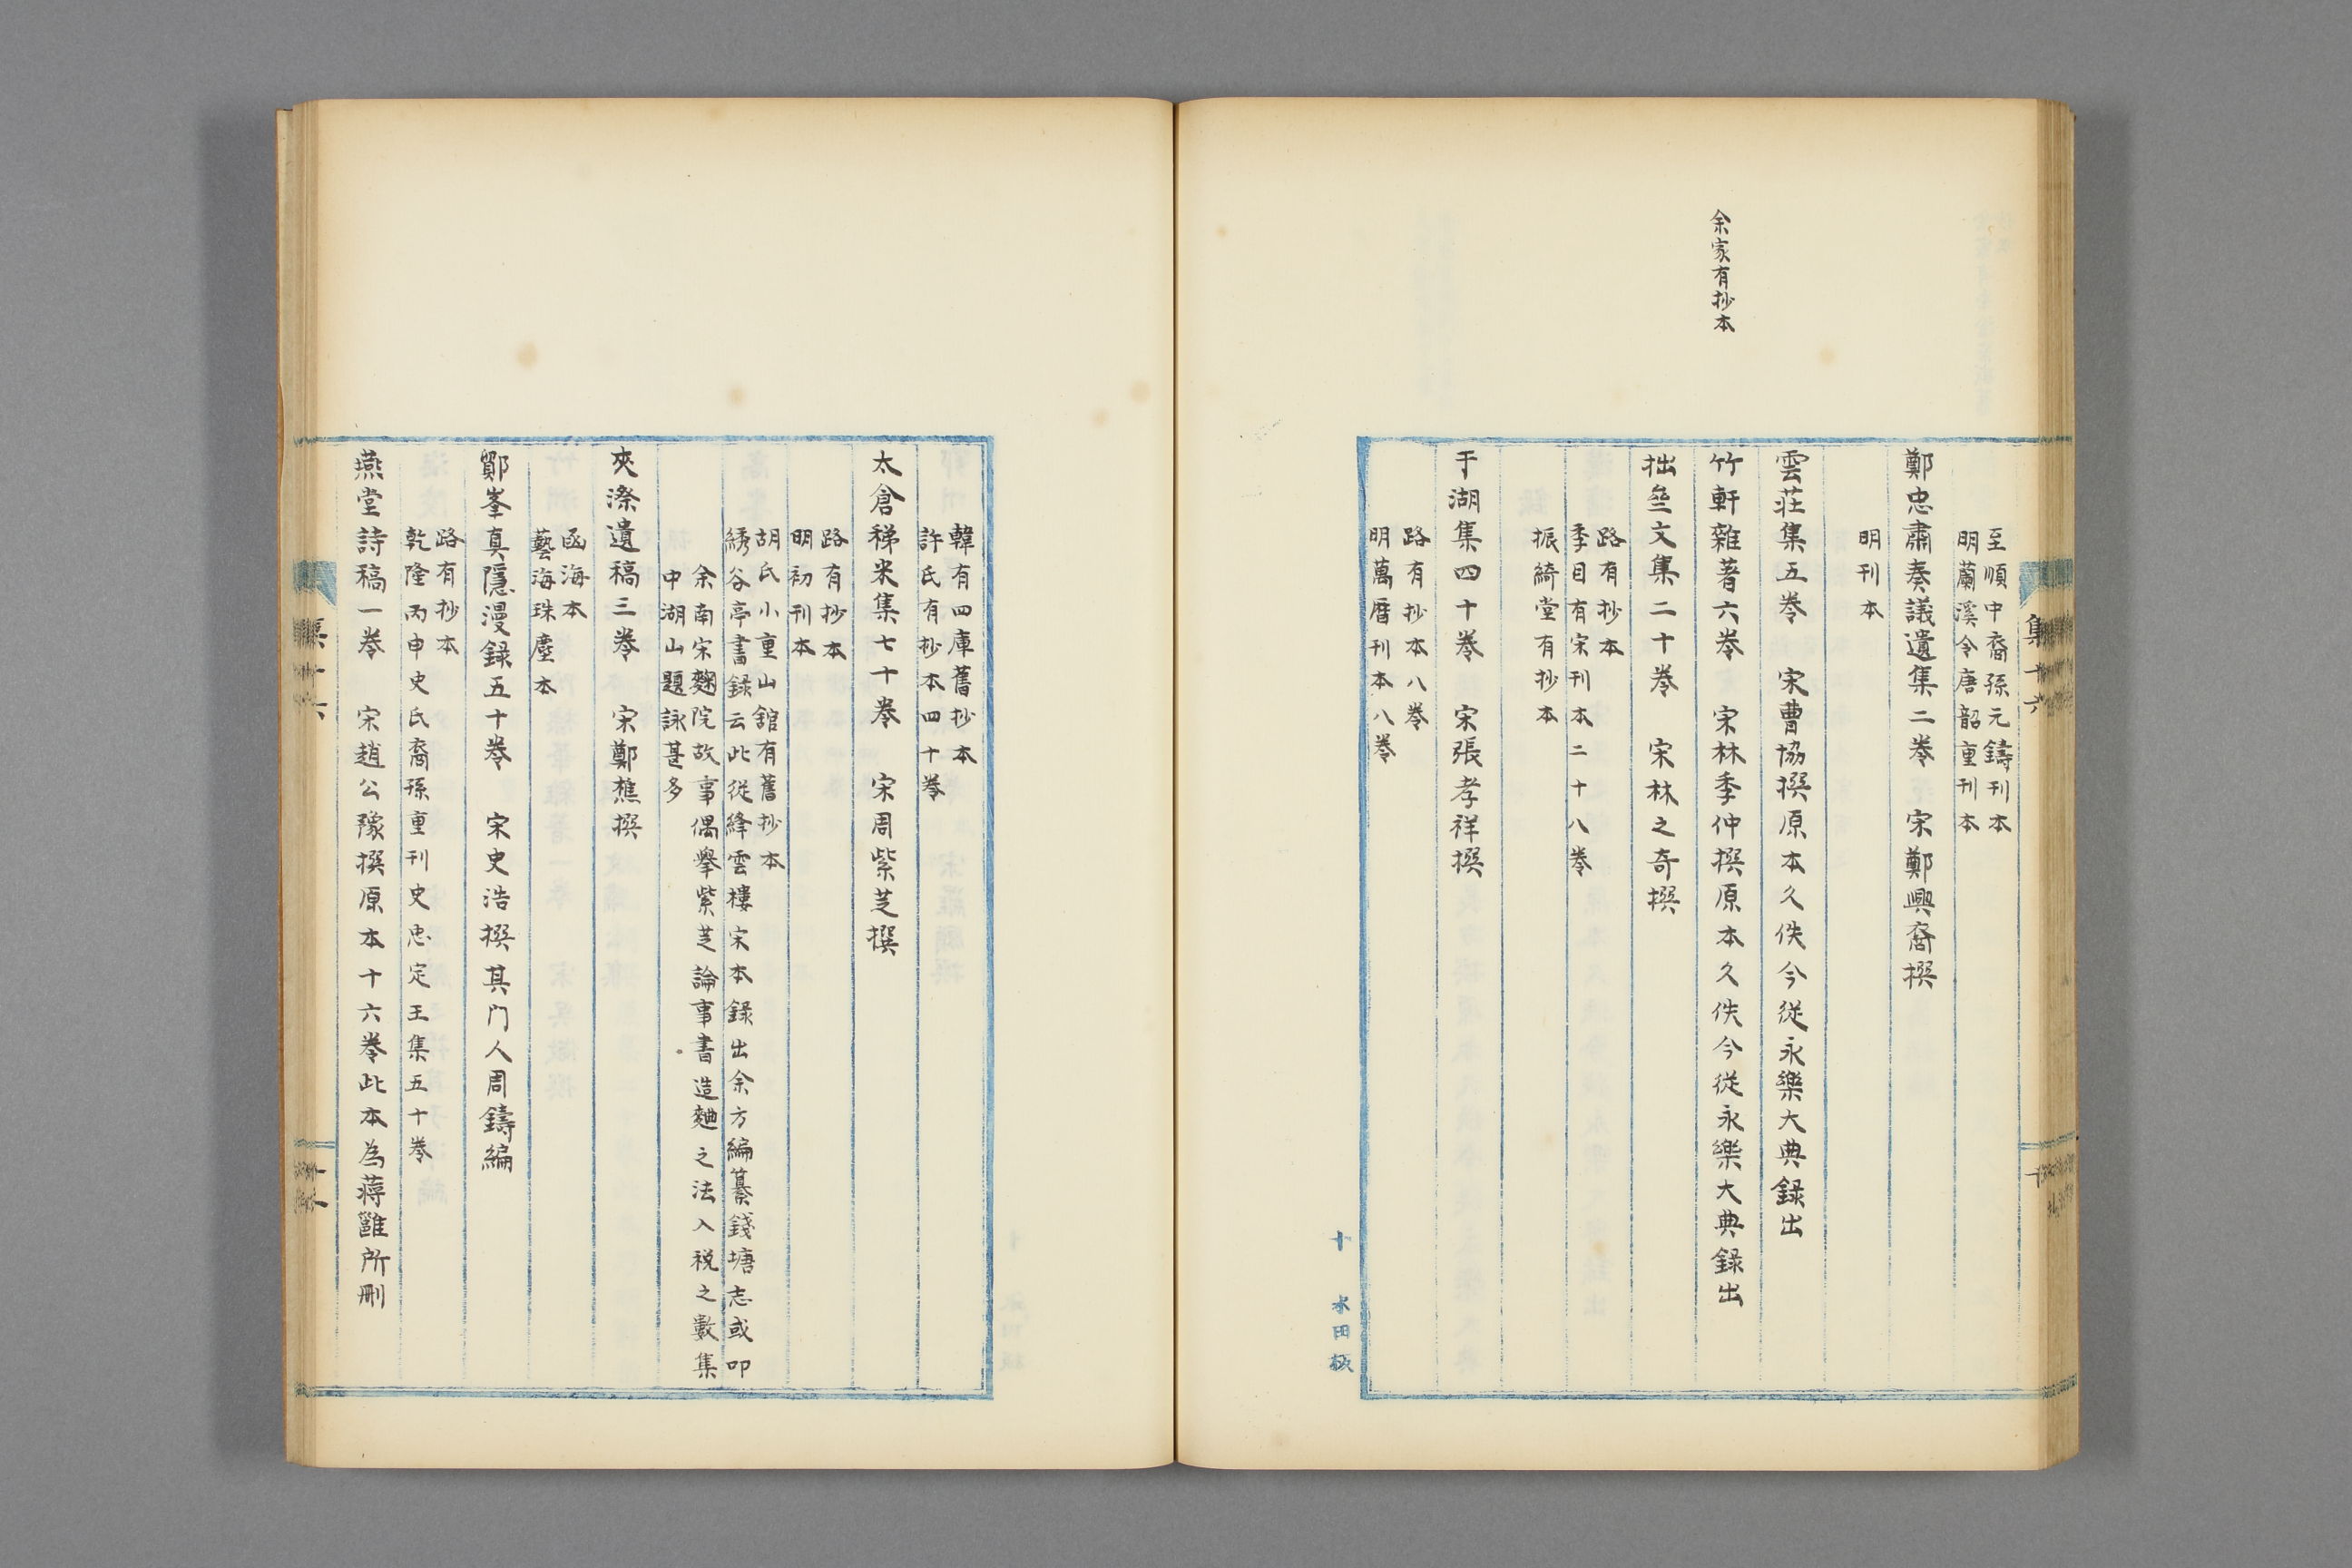 余家有抄本
集十六
十
至順中裔孫元鑄刊本
明蘭溪令唐韶重刊本
鄭忠肅奏議遺集二卷　宋鄭興裔撰
明刊本
雲莊集五卷　宋曹協撰原本久佚今從永樂大典録出
竹軒雜著六卷　宋林季仲撰原本久佚今從永樂大典録出
拙亝文集二十卷　宋林之奇撰
路有抄本
季目有宋刊本二十八卷
振綺堂有抄本
于湖集四十卷　宋張孝祥撰
路有抄本八卷
明萬曆刊本八卷
十　水田板
韓有四庫舊抄本
許氏有抄本四十卷
太倉稊米集七十卷　宋周紫芝撰
路有抄本
明初刊本
胡氏小重山館有舊抄本
綉谷亭書録云此從絳雲樓宋本録出余方編纂錢塘志或叩
余南宋麴院故事偶舉紫芝論事書造麯之法入税之數集
中湖山題詠甚多
夾漈遺稿三卷　宋鄭樵撰
函海本
藝海珠塵本
鄮峯真隱漫録五十卷　宋史浩撰其門人周鑄編
路有抄本
乾隆丙申史氏裔孫重刊史忠定王集五十卷
燕堂詩稿一卷　宋趙公豫撰原本十六卷此本為蔣雝所刪
集十六